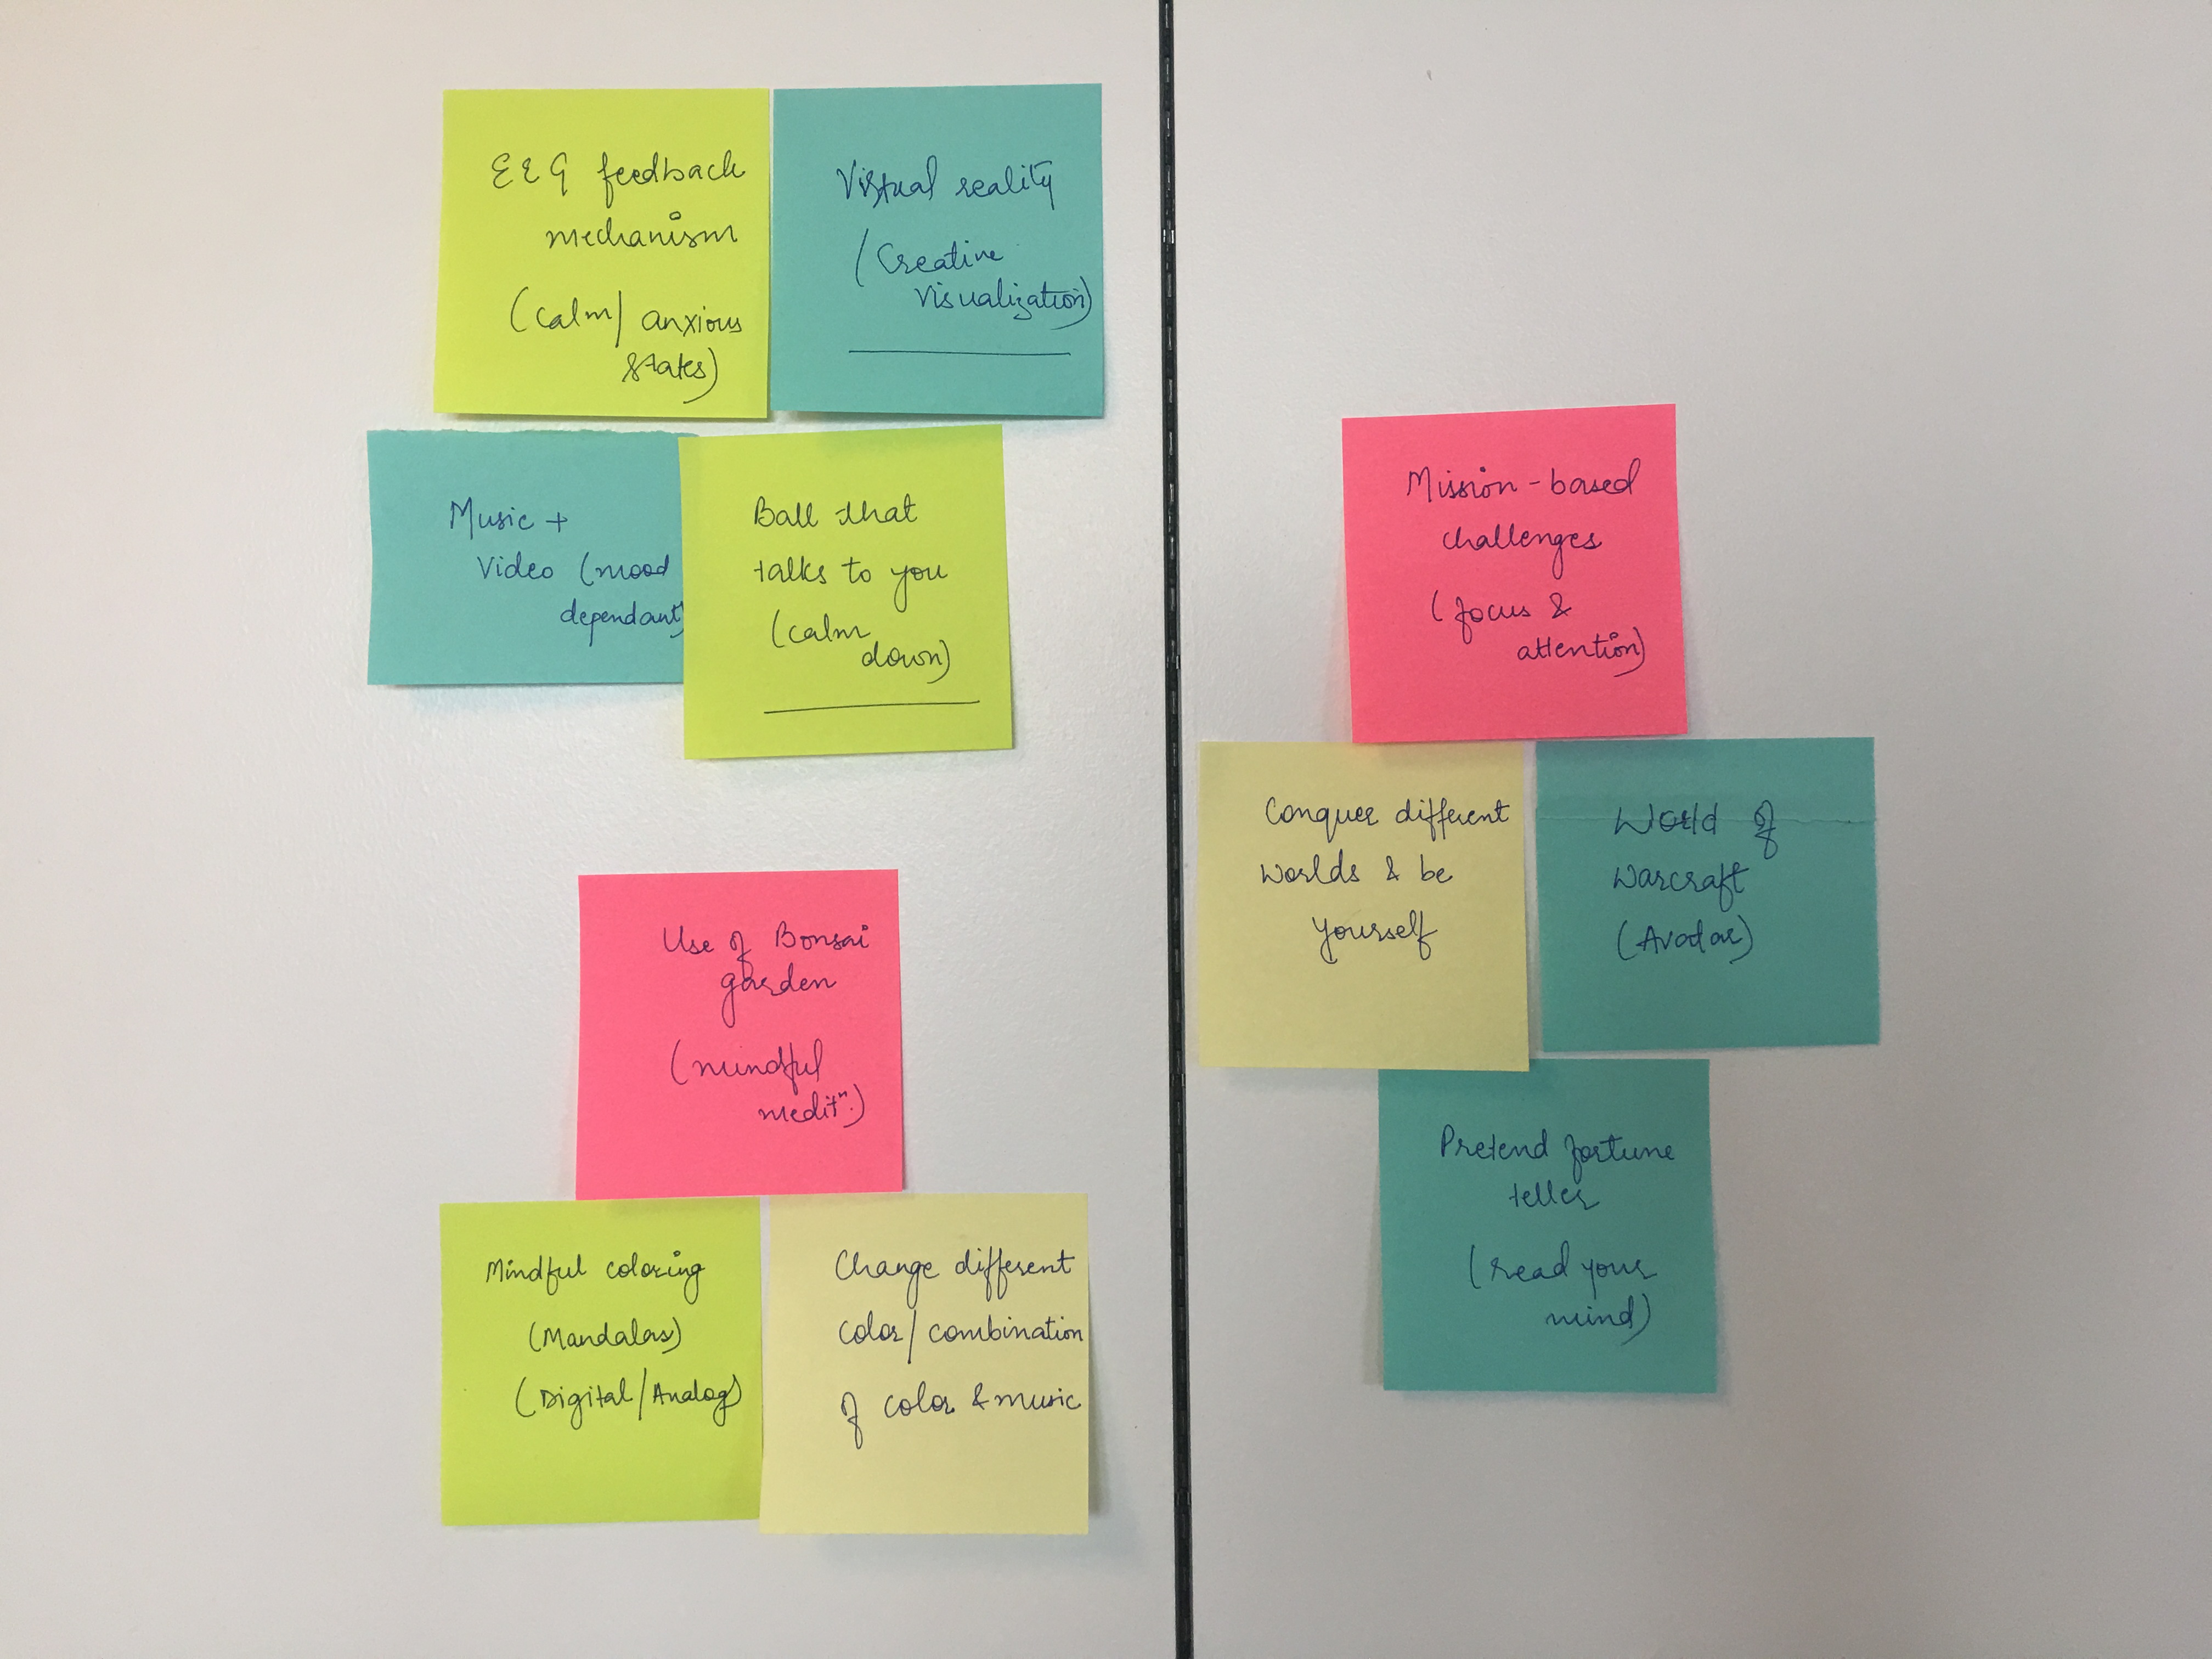 EEG feedback
mechanism
(calm/ anxious
states)
Virtual reality
(Creative
visualization)
Music +
Video (mood
dependant)
Ball that
talks to you
(calm
down)
Use of Bonsai
garden
(mindful
meditⁿ.)
Mindful coloring
(Mandalas)
(Digital/Analog)
Change different
color/combination
of color & music
Mission-based
challenges
(focus &
attention)
Conquer different
worlds & be
yourself
World of
Warcraft
(Avatar)
Pretend fortune
teller
(read your
mind)